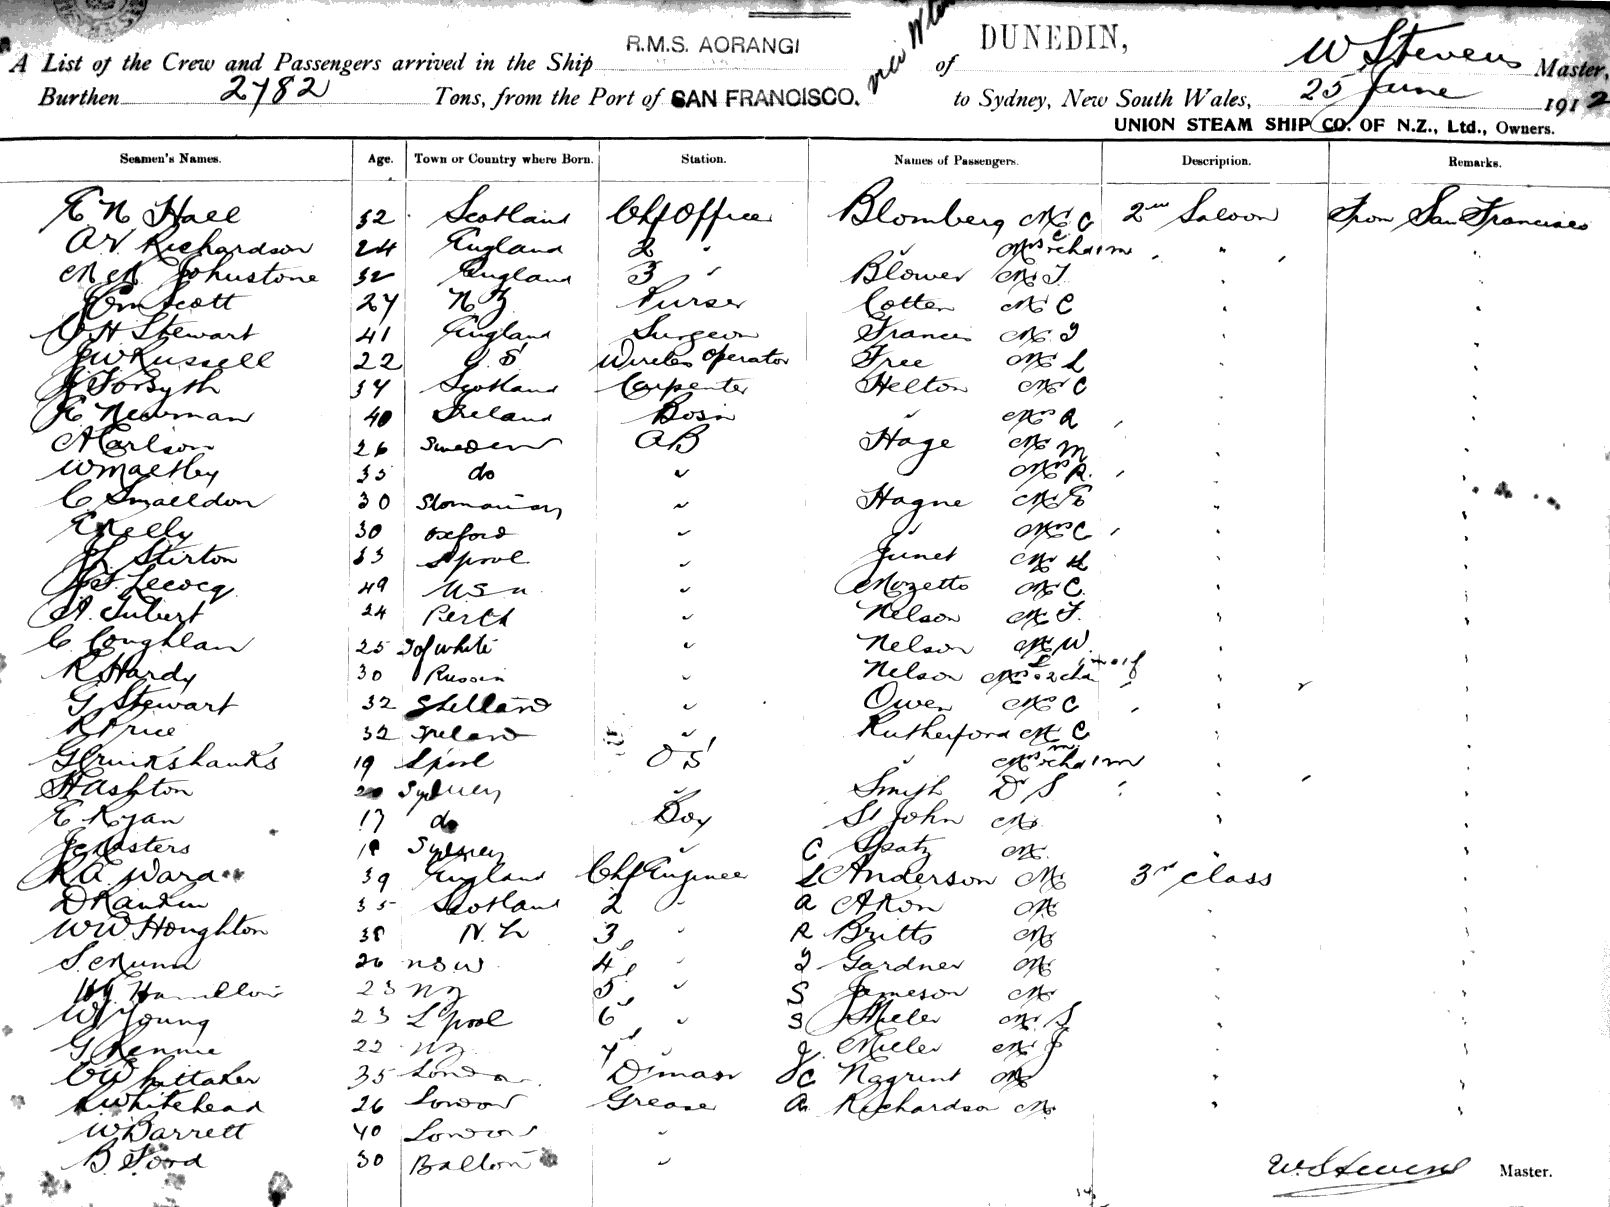 R.M.S. AORANGI via DUNEDIN, W Stevens
A List of the Crew and Passengers arrived in the Ship of Master,
Burthen 2782 Tons, from the Port of SAN FRANCISCO. to Sydney, New South Wales, 25 June 1912
UNION STEAM SHIP CO. OF N.Z., Ltd., Owners.
Seamen's Names. Age. Town or Country where Born. Station. Names of Passengers. Description. Remarks.
E N Hall 32 Scotland Chf Officer Blomberg Mr C 2nd Saloon From San Francisco
A V Richardson 24 England 2 " " Mrs " "
Johnstone 32 England 3 " Blower Mr T " "
Scott 27 N Z Purser Cotter Mr C " "
H Stewart 41 England Surgeon Francis Mr " "
J W Russell 22 Wireless Operator Free Mr L " "
J Forsyth 34 Scotland Carpenter Helton Mr C " "
E Newman 40 Ireland Bosn " Mrs A " "
A Carlson 26 Sweden AB Hage Mr M " "
W 35 do " Mrs R. " "
C Smalldon 30 " Hagne Mr E " "
E Kelly 30 Oxford " " Mrs C " "
Stirton 33 Lpool " Mr " "
Lecocq 49 " Mozetto Mr C. " "
A. Tubert 24 Perth " Nelson Mr T. " "
C Coughlan 25 I of White " Nelson Mr W. " "
R Hardy 30 Russia " Nelson Mrs " "
G Stewart 32 Shetland " Owen Mr C " "
R Price 32 Ireland " Rutherford Mr C " "
G Cruikshanks 19 Lpool O S " Mrs " "
H Ashton 20 Sydney " Smyth Dr S " "
E Ryan 17 do Boy St John Mr " "
J Masters 18 Sydney " C Spatz Mr " "
R A. Ward 39 England Chf Engineer L Anderson Mr 3rd class "
D Rankin 35 Scotland 2 " A Akon Mr " "
W W Houghton 38 N. Z 3 " R Britts Mr " "
S. Munn 26 NSW 4 " Gardner Mr " "
Hamilton 23 NZ 5 " S Jameson Mr " "
W J Young 23 L'pool 6 " S Miller Mr S " "
G Rennie 22 NZ 7 " J. Miller Mr J " "
Whittaker 35 London C Mr " "
Whitehead 26 London Greaser A Richardson Mr " "
W Barrett 40 London "
B. Ford 30 "
W. Stevens Master.